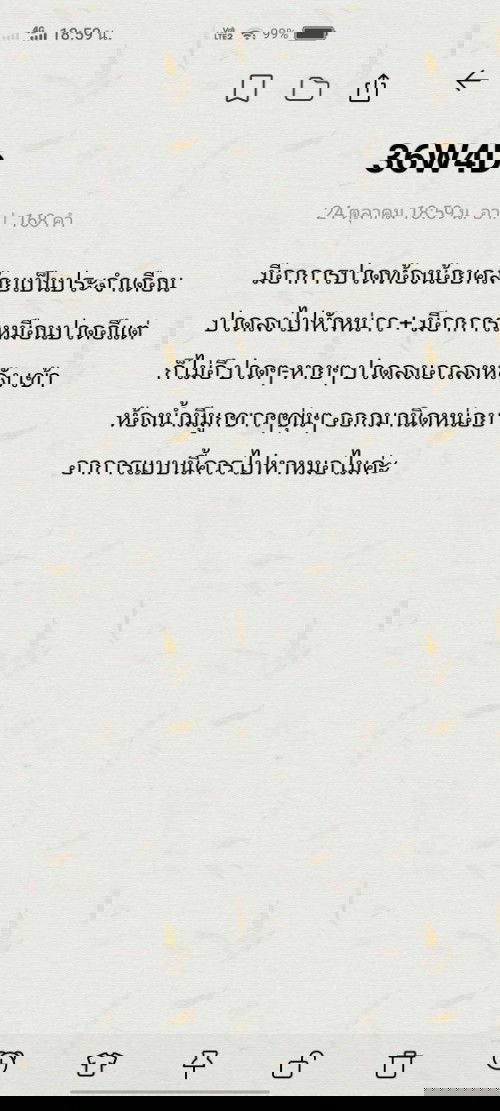 18:59 น. 99%
36W4D
24 ตุลาคม 18:59 น. | 168 คำ
มีอาการปวดท้องน้อยคล้ายเป็นประจำเดือน
ปวดลงไปหัวหน่าว + มีอาการเหมือนปวดอึแต่
ก็ไม่อึ ปวดๆหายๆ ปวดลงเอวลงหลัง เข้า
ห้องน้ำมีมูกขาวๆขุ่นๆ ออกมานิดหน่อย
อาการแบบนี้ควรไปหาหมอไมค่ะ